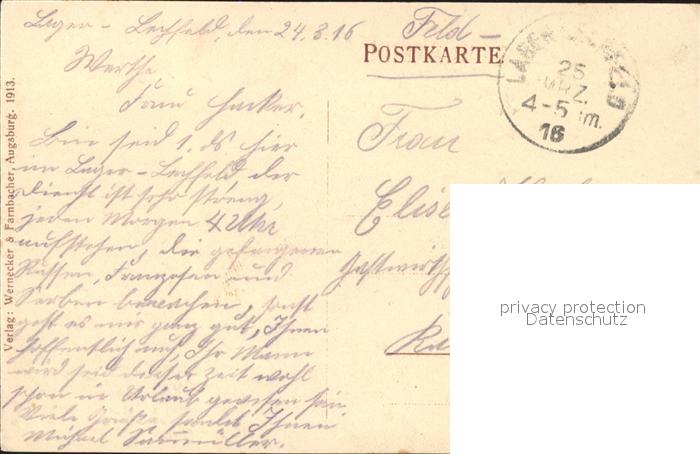 Lager - Lechfeld, den 24.3.16
Feld -
POSTKARTE
LAGER LECHFELD
25
MRZ.
4-5 Nm.
16
Werthe
Frau Hacker.
Bin seid 1. ds. hier
im Lager - Lechfeld der
Dienst ist sehr streng,
jeden Morgen 4 Uhr
aufstehen, die gefangenen
Russen, Franzosen und
Serben bewachen, sonst
geht es mir ganz gut, Ihnen
hoffentlich auch, Ihr Mann
wird seid dieser Zeit wohl
schon in Urlaub gewesen sein
Viele Grüße sendet Ihnen
Michael
Frau
Elise
Gastwirths
Verlag: Wernecker & Farnbacher, Augsburg. 1913.
privacy protection
Datenschutz